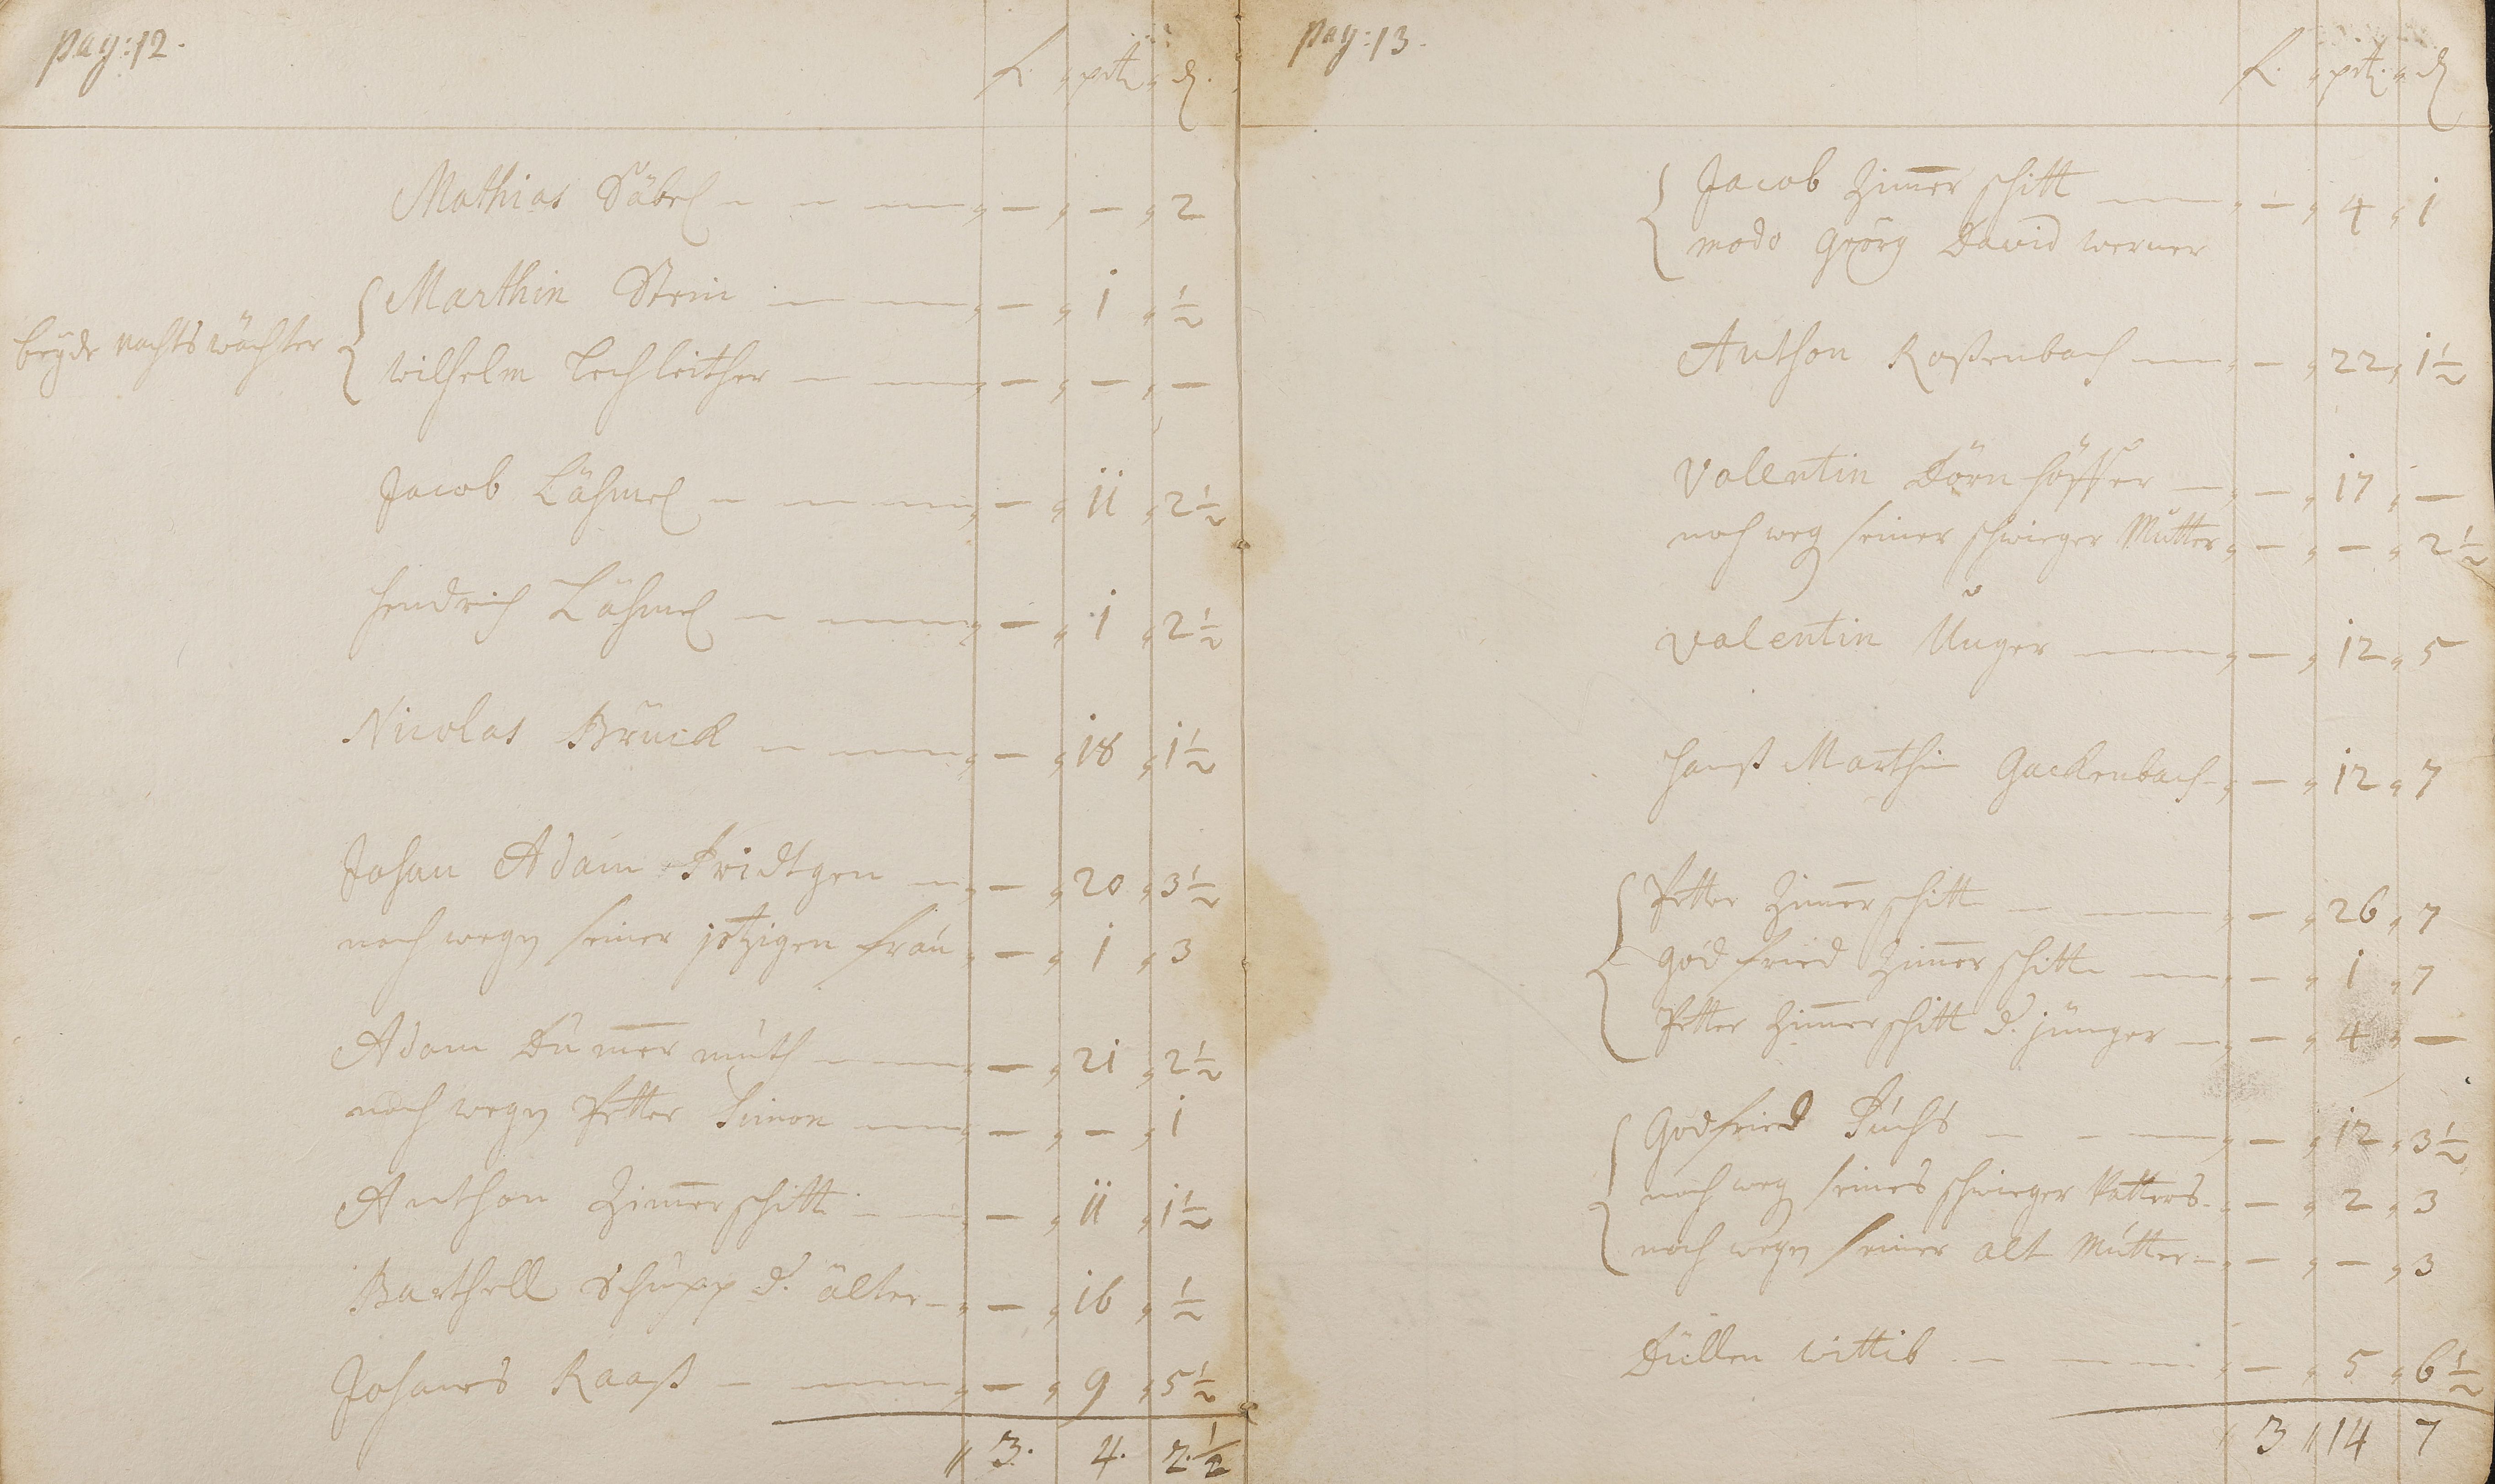 pag: 12.
f. " pet " d.
Mathias Däbel — " — " — " 2
beyde nachts wächter
Marthin Stein — " — " 1 " ½
Wilhelm Lechleither — " — " — " —
Jacob Lähmel — " — " 11 " 2½
Hendrich Lähmel — " — " 1 " 2½
Nicolas Brück — " — " 18 " 1½
Johan Adam Fridtgen — " — " 20 " 3½
noch wegen seiner jetzigen frau " — " 1 " 3
Adam Dümermuth — " — " 21 " 2½
noch wegen Petter Simon — " — " — " 1
Anthon Zimerschitt — " — " 11 " 1½
Barthell Schupp d. älter — " — " 16 " ½
Johanes Raaß — " — " 9 " 5½
" 3. 4. 2.½
pag: 13.
f. " pet. " d
Jacob Zimerschitt — " — " 4 " 1
modo Georg David Werner
Anthon Roßenbach — " — " 22 " 1½
Valentin Dörnhöffer — " — " 17 " —
noch weg seiner schwieger Mutter " — " — " 2½
Valentin Unger — " — " 12 " 5
Hanß Marthin Gackenbach — " — " 12 " 7
Petter Zimerschitt — " — " 26 " 7
Godfried Zimerschitt — " — " 1 " 7
Petter Zimerschitt d. jünger — " — " 4 " —
Godfried Fuchs — " — " 12 " 3½
noch weg seines schwieger Vatters — " — " 2 " 3
noch wegen seiner alt Mutter — " — " — " 3
Düllen wittib — " — " 5 " 6½
" 3 " 14 7